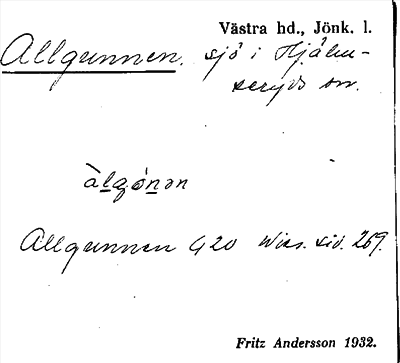 Västra hd., Jönk. l.
Allgunnen. sjö i Hjälm-
seryds sn.
àlgónən
Allgunnen G20 Wies. sid. 269.
Fritz Andersson 1932.